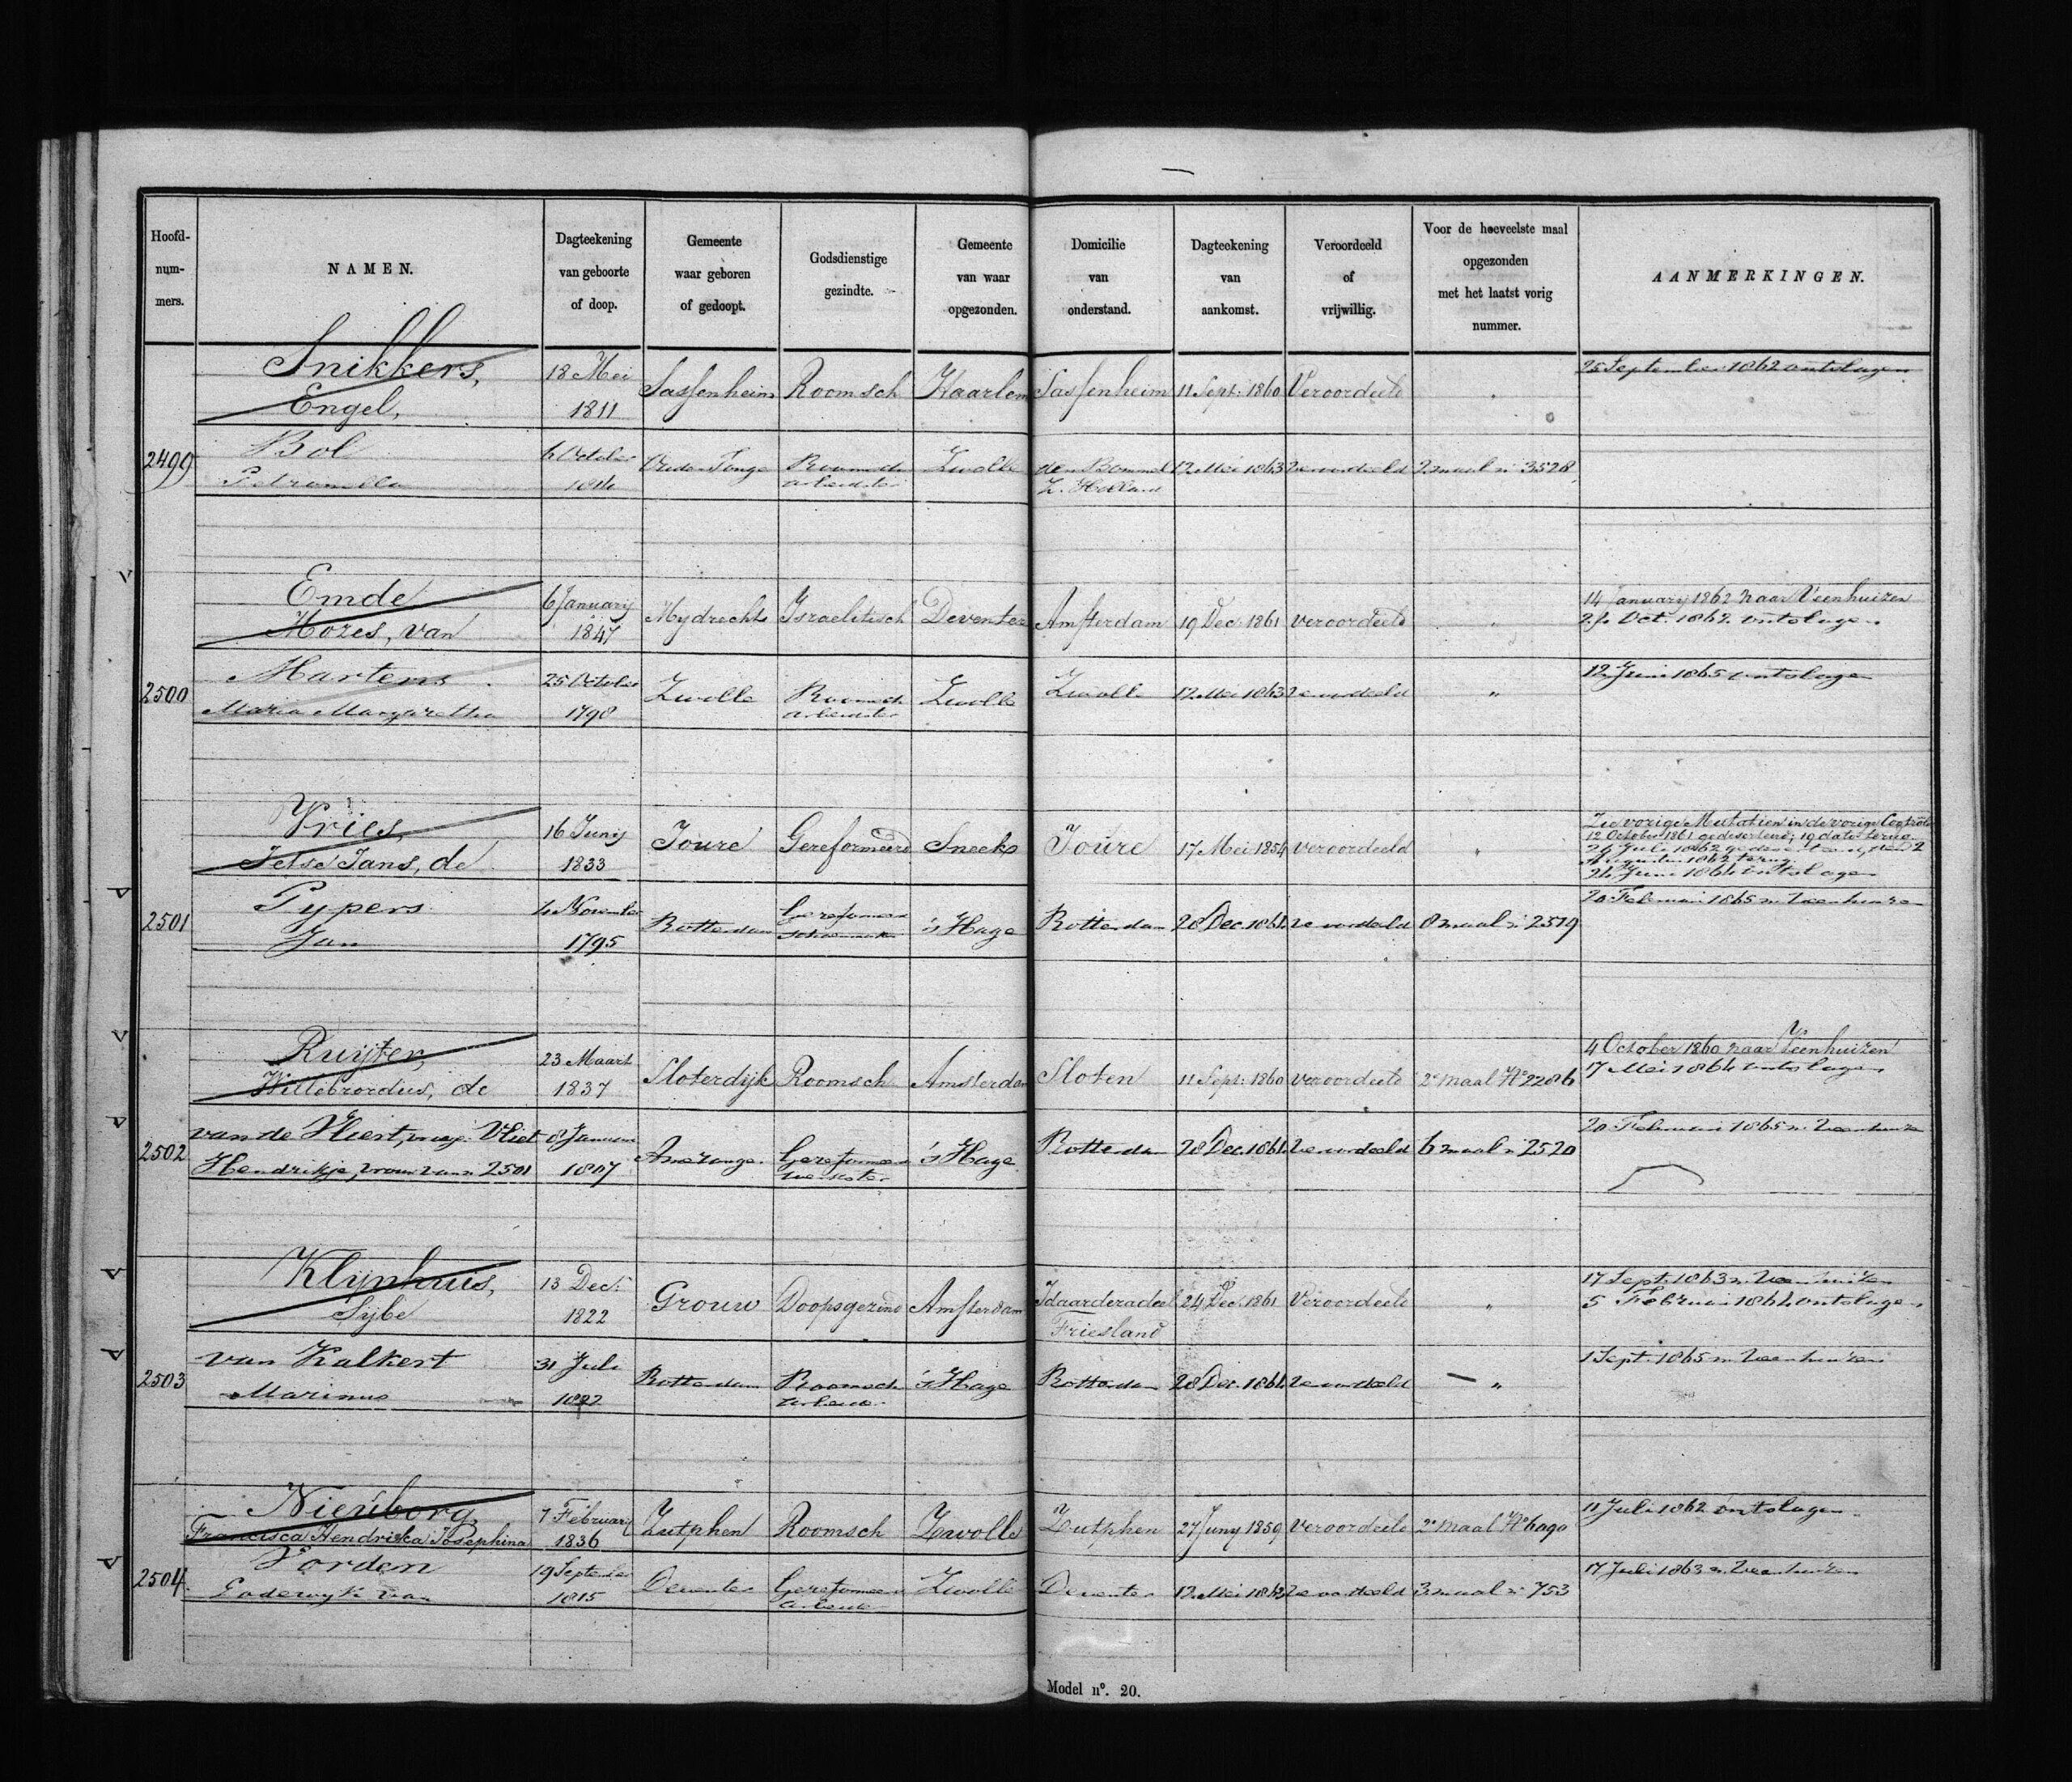 Hoofd-
num-
mers.
NAMEN.
Dagteekening
van geboorte
of doop.
Gemeente
waar geboren
of gedoopt.
Godsdienstige
gezindte.
Gemeente
van waar
opgezonden.
Domicilie
van
onderstand.
Dagteekening
van
aankomst.
Veroordeeld
of
vrijwillig.
Voor de hoeveelste maal
opgezonden
met het laatst vorig
nummer.
AANMERKINGEN.
2499
Snikkers,
Engel,
18 Mei
1811
Sassenheim
Roomsch
Haarlem
Sassenheim
11 Sept. 1860
Veroordeeld
"
25 September 1862 ontslagen
Bol
Petronella
6 October
Roomsch
arbeidster
Zwolle
den Bommel
Z. Holland
12 Mei 1863
Veroordeeld
2 maal n 3528
2500
Emde
Mozes, van
6 Januarij
1847
Mydrecht
Israelitisch
Deventer
Amsterdam
19 Dec. 1861
veroordeeld
"
14 January 1862 naar Veenhuizen
Oct. 1862 ontslagen
Martens
Maria Margaretha
25 October
1798
Zwolle
Roomsch
arbeidster
Zwolle
Zwolle
12 Mei 1863
Veroordeeld
"
12 Juni 1865 ontslagen
2501
Vries,
Jetse Jans, de
16 Junij
1833
Joure
Gereformeerd
Sneek
Joure
17 Mei 1854
veroordeeld
"
Zie vorige Mutatien in de vorige Controle
12 October 1861 gedeserteerd, 19 dato terug
26 Juli 1862 gedeserteerd, den 2
Augustus 1862 terug
24 Juni 1864 ontslagen
Pypers
Jan
4 November
1795
Rotterdam
Gereformeerd
schoenmaker
's Hage
Rotterdam
28 Dec. 1861
veroordeeld
8 maal n 2519
20 Februari 1865 n. Veenhuizen
2502
Ruijter,
Willebrordus, de
23 Maart
1837
Sloterdijk
Roomsch
Amsterdam
Sloten
11 Sept. 1860
veroordeeld
2e maal No 2286
4 October 1860 naar Veenhuizen
17 Mei 1864 ontslagen
van de Vliert, Vliet
Hendrikje, vrouw van n 2501
8 Januari
1807
Amerongen
Gereformeerd
werkster
's Hage
Rotterdam
28 Dec. 1861
veroordeeld
6 maal n 2520
20 Februari 1865 n. Veenhuizen
2503
Klijnhuis,
Sijbe
13 Dec.
1822
Grouw
Doopsgezind
Amsterdam
Idaarderadeel
Friesland
24 Dec. 1861
Veroordeeld
"
17 Sept. 1863 n. Veenhuizen
5 Februari 1864 ontslagen
van Kalkert
Marinus
31 Juli
Rotterdam
Roomsch
arbeider
's Hage
Rotterdam
28 Dec. 1861
veroordeeld
— "
1 Sept. 1865 n. Veenhuizen
2504
Nieuborg,
Francisca Hendrika Josephina
7 Februarij
1836
Zutphen
Roomsch
Zwolle
Zutphen
27 Juny 1859
Veroordeeld
2e maal No 6090
11 Juli 1862 ontslagen
Vorden
Lodewyk van
19 September
1815
Deventer
Gereformeerd
arbeider
Zwolle
Deventer
12 Mei 1863
veroordeeld
3 maal n 753
17 Juli 1863 n. Veenhuizen
Model no. 20.